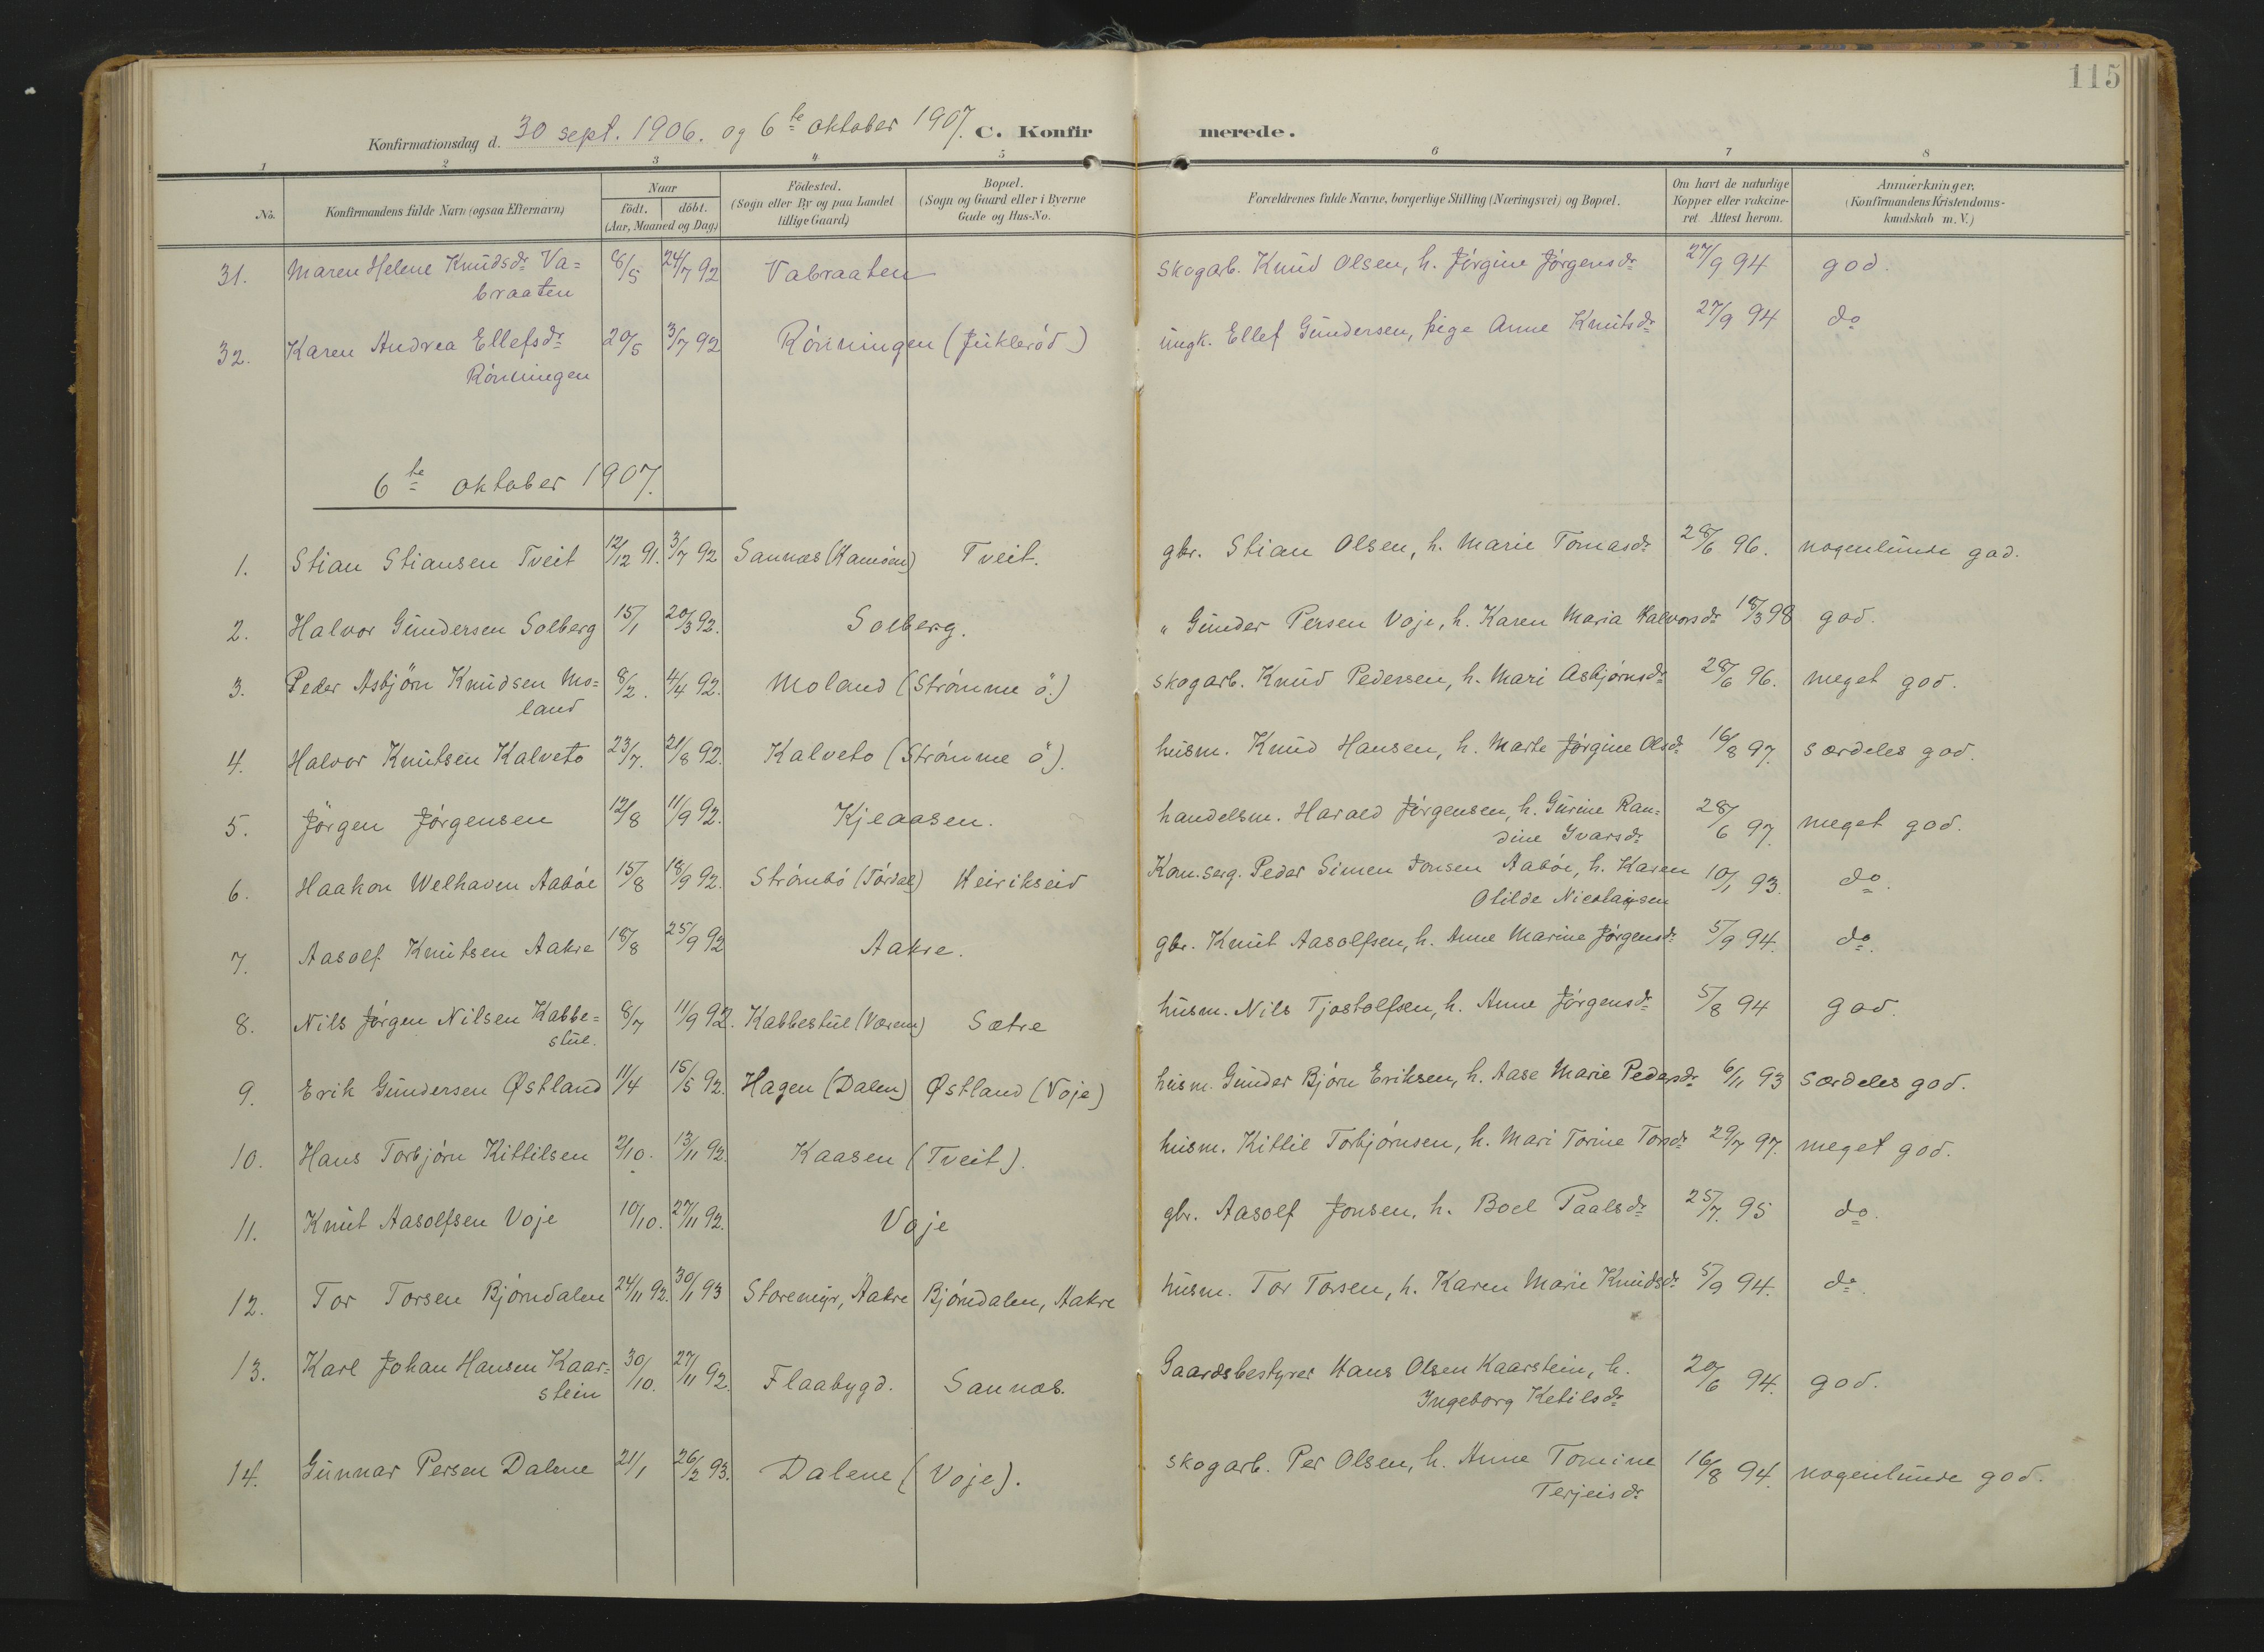 115
Konfirmationsdag d. 30 sept. 1906. og 6te oktober 1907. C. Konfirmerede.
1 2 3 4 5 6 7 8
No. Konfirmandens fulde Navn (ogsaa Efternavn) Naar födt. döbt. (Aar, Maaned og Dag) Födested. (Sogn eller By og paa Landet tillige Gaard) Bopæl. (Sogn og Gaard eller i Byerne Gade og Hus-No. Forældrenes fulde Navne, borgerlige Stilling (Næringsvei) og Bopæl. Om havt de naturlige Kopper eller vakcineret Attest herom. Anmærkninger. (Konfirmandens Kristendomskundskab m. V.)
31. Maren Helene Knudsdr Va= 8/5 24/7 92 Vabraaten skogarb. Knud Olsen, h. Jörgine Jörgensdr 27/9 94 god.
braaten
32. Karen Andrea Ellefsdr 20/5 3/7 92 Rönningen (Juklerød) ungk. Ellef Gundersen, pige Anne Knutsdr 27/9 94 do
Rönningen
6te oktober 1907.
1. Stian Stiansen Tveit 12/12 91. 3/7 92 Sannæs (Kamöen) Tveit. gbr. Stian Olsen, h. Marie Tomasdr 28/6 96. nogenlunde god.
2. Halvor Gundersen Solberg 15/1 20/3 92. Solberg. " Gunder Persen Voje, h. Karen Maria Halvorsdr 18/3 98 god.
3. Peder Asbjörn Knudsen Mo= 8/2. 4/4 92. Moland (Strömme ö.) skogarb. Knud Pedersen, h. Mari Asbjørnsdr 28/6 96. meget god.
land
4. Halvor Knutsen Kalveto 23/7. 21/8 92. Kalveto (Strömme ö.). husm. Knud Hansen, h. Marte Jörgine Olsdr 16/8 97. særdeles god.
5. Jörgen Jörgensen 12/8 11/9 92. Kjeaasen. handelsm. Harald Jörgensen, h. Gurine Ran= 28/6 97. meget god.
dine Ivarsdr
6. Haakon Welhaven Aabøe 15/8 18/9 92. Strömbö (Tördal) Heirikseid Kom.serg. Peder Simen Jonsen Aabøe, h. Karen 10/1 93. do.
Otilde Nicolaisen
7. Aasolf Knutsen Aakre 18/8 25/9 92 Aakre. gbr. Knut Aasolfsen, h. Anne Marine Jörgensdr 5/9 94. do.
8. Nils Jörgen Nilsen Kabbe= 8/7 11/9 92. Kabbestul (Værem) Sætre husm. Nils Tjostolfsen, h. Anne Jörgensdr 5/8 94 god.
stul.
9. Erik Gundersen Østland 11/4 15/5 92. Hagen (Dalen) Østland (Voje) husm. Gunder Bjørn Eriksen, h. Aase Marie Pedersdr 6/11 93 særdeles god.
10. Hans Torbjörn Kittilsen 2/10. 13/11 92. Kaasen (Tveit). husm. Kittil Torbjörnsen, h. Mari Torine Torsdr 29/7 97. meget god.
11. Knut Aasolfsen Voje 10/10. 27/11 92. Voje gbr. Aasolf Jonsen, h. Boel Paalsdr 25/7. 95 do.
12. Tor Torsen Bjørndalen 24/11 92. 30/1 93 Storemyr, Aakre Bjørndalen, Aakre husm. Tor Torsen, h. Karen Marie Knudsdr 5/9 94. do
13. Karl Johan Hansen Kaar= 30/10. 27/11 92. Flaabygd. Sannæs. Gaardsbestyrer Hans Olsen Kaarstein, h. 20/6 94. god.
stein Ingeborg Ketilsdr
14. Gunnar Persen Dalene 21/1 26/2 93. Dalene (Voje). skogarb. Per Olsen, h. Anne Tomine 16/8 94. nogenlunde god.
Terjeisdr